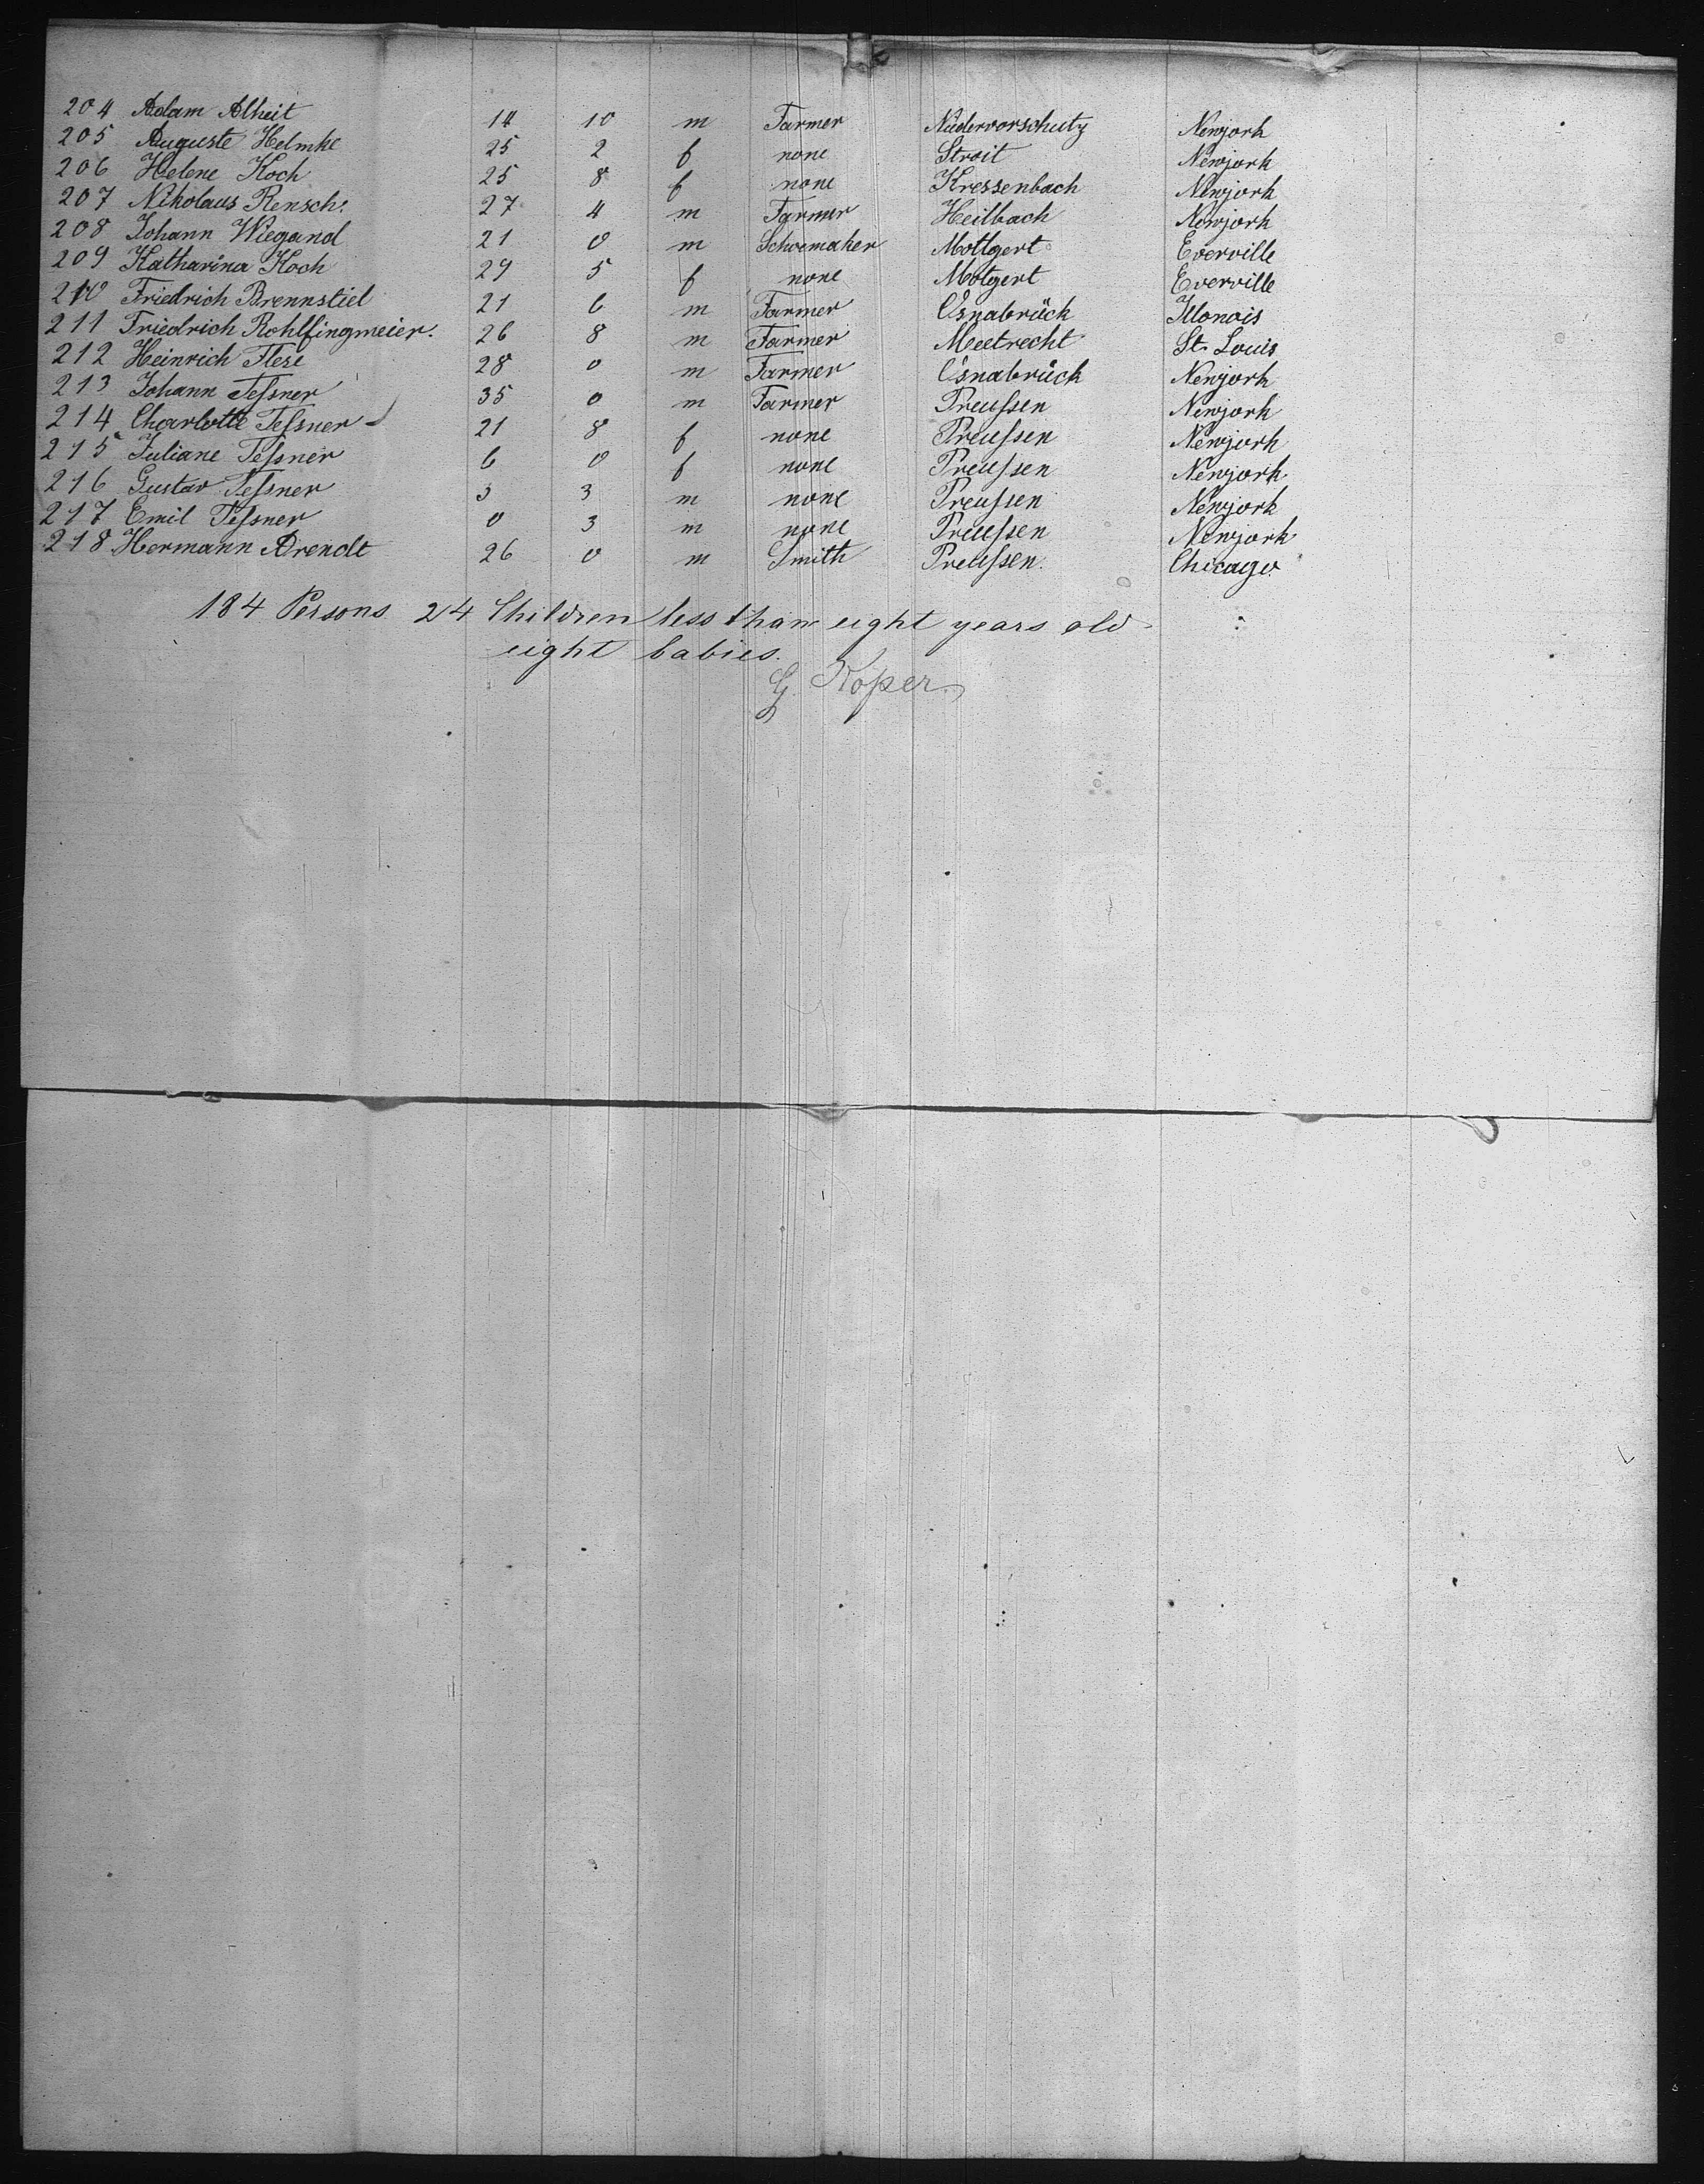 204 Adam Alheit 14 10 m Farmer Niedervorschutz Newjork
205 Auguste Helmke 25 2 f none Stroit Newjork
206 Helene Koch 25 8 f none Kressenbach Newjork
207 Nikolaus Rensch. 27 4 m Farmer Heilbach Newjork
208 Johann Wiegand 21 0 m Schoemaker Mottgert Everville
209 Katharina Koch 29 5 f none Motgert Everville
210 Friedrich Brennstiel 21 6 m Farmer Osnabrück Illonois
211 Friedrich Rohlfingmeier. 26 8 m Farmer Meetrecht St. Louis
212 Heinrich Flese 28 0 m Farmer Osnabrück Newjork
213 Johann Teſsner 35 0 m Farmer Preuſsen Newjork
214 Charlotte Teſsner 21 8 f none Preuſsen Newjork
215 Juliane Teſsner 6 0 f none Preuſsen Newjork
216 Gustav Teſsner 3 3 m none Preuſsen Newjork
217 Emil Teſsner 0 3 m none Preuſsen Newjork
218 Hermann Arendt 26 0 m Smith Preuſsen. Chicago.
184 Persons 24 Children less than eight years old
eight babies.
G. Koper